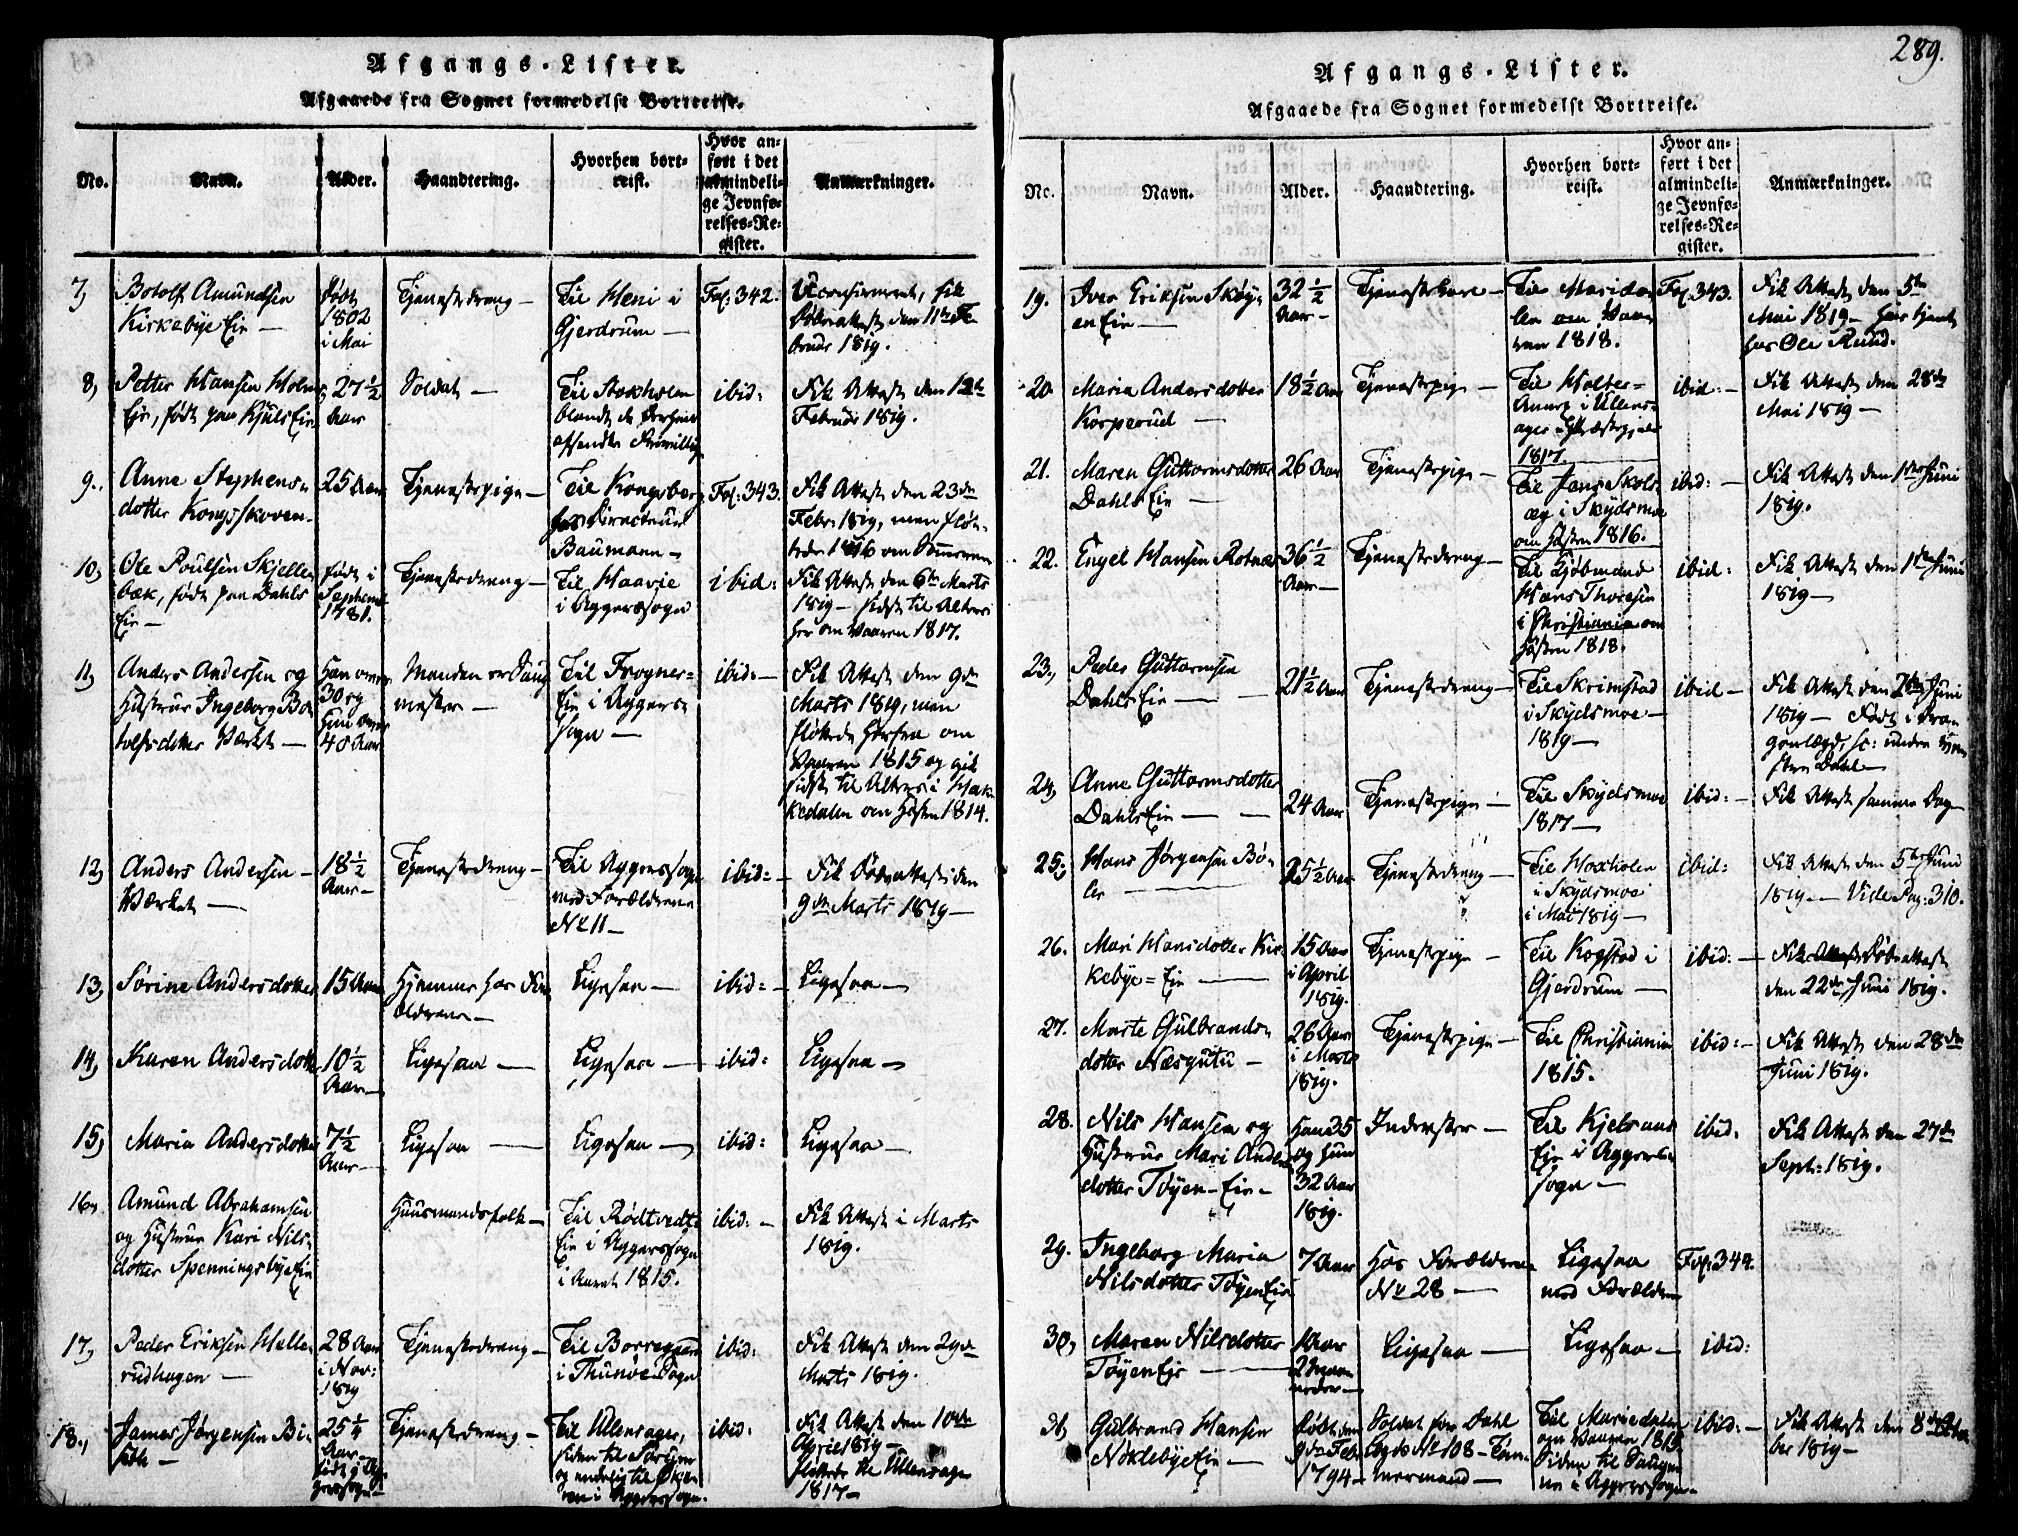 Afgangs-Lister.
Afgaaede fra Sognet formedelst Bortreise.
No.
Navn.
Alder.
Haandtering.
Hvorhen bort-
reist.
Hvor an-
ført i det
almindeli-
ge Jevnfø-
relses-Re-
gister.
Anmærkninger.
7,
Botolf Amundsen
Kirkebye Eie —
født
1802
i Mai
Tjenestedreng —
Til Heni i
Gjerdrum —
Fol: 342.
Uconfirmeret, fik
Døbeattest den 11te Fe-
bruar 1819.
8,
Petter Hansen Holm
Eie, født paa Kjuls Eie
27½
Aar
Soldat —
Til Stokholm
blandt de
afsendte Frivillige
ibid:
Fik Attest den 12te
Februar 1819.
9.,
Anne Stephens-
dotter Kongsskoven
25 Aar
Tjenestepige —
Til Kongsberg
hos Directeur
Baumann —
Fol: 343.
Fik Attest den 23de
Febr: 1819, men fløt-
tede 1816 om Sommeren
10,
Ole Poulsen Skjelle-
bæk, født paa Dahls
Eie —
født i
Septemb
1781.
Tjenestedreng —
Til Haavie
i Aggerssogn
ibid:
Fik Attest den 6te Marts
1819 — sidst til Alters
her om Vaaren 1817.
11,
Anders Andersen og
Hustrue Ingeborg Bo-
tolfsdotter Værket —
Han over
30 og
Hun over
40 Aar
Manden er Saug-
mester —
Til Frogner-
Eie i Aggers-
sogn —
ibid: —
Fik Attest den 9de
Marts 1819, men
fløttede herfra om
Vaaren 1815 og gik
sidst til Alters i Hak-
kedalen om Høsten 1814.
12,
Anders Andersen —
Værket —
18½
Aar —
Tjenestedreng —
Til Aggerssogn
med Forældrene
No 11 —
ibid: —
Fik Døbeattest den
9de Marts 1819 —
13,
Sørine Andersdotter
15 Aar
Hjemme hos For-
ældrene —
Ligesaa —
ibid: —
Ligesaa —
14,
Karen Andersdotter
10½
Aar —
Ligesaa —
Ligesaa —
ibid:
Ligesaa —
15,
Maria Andersdotter
7½
Aar —
Ligesaa —
Ligesaa —
ibid:
Ligesaa —
16,
Amund Abrahamsen
og Hustrue Kari Nils-
dotter Spenningsbye Eie
Huusmandsfolk —
Til Rødtvedt-
Eie i Aggerssogn
i Aaret 1815.
ibid: —
Fik Attest i Marts
1819.
17,
Peder Eriksen Helle-
rudhagen —
28 Aar
i Nov:
1819
Tjenestedreng —
Til Borregaard
i Thunøe Sogn
ibid:
Fik Attest den 29de
Marts 1819.
18.,
James Jørgensen Bi-
25¼
Aar
Tjenestedreng —
Til Ullensager,
siden til Sørum
og endelig til
i Aggerssogn.
ibid:
Fik Attest den 10de
April 1819 —
fløttede til Ullensager
1817 —
289.
Afgangs-Lister.
Afgaaede fra Sognet formedelst Bortreise.
No.
Navn.
Alder.
Haandtering.
Hvorhen bort-
reist.
Hvor an-
ført i det
almindeli-
ge Jevnfø-
relses-Re-
gister.
Anmærkninger.
19.
Iver Eriksen Skøy-
en Eie —
32½
Aar —
Tjenestekarl —
Til Marida-
len om Vaa-
ren 1818.
Fol. 343.
Fik Attest den 5te
Mai 1819 — har tjent
hos Ole Ruud.
20.
Maria Andersdotter
Korperud —
18½ Aar
Tjenestepige —
Til Holter-
Annex i Ullens-
ager Præstegjeld
1817.
ibid: —
Fik Attest den 28de
Mai 1819 —
21.
Maren Guttormsdotter
Dahls Eie —
26 Aar
Tjenestepige —
Til Jans Skols-
æg i Skydsmoe
om Høsten 1816.
ibid: —
Fik Attest den 1ste Juni
1819.
22.
Engel Hansen Rotnæs
36½
Aar —
Tjenestedreng —
Til Kjøbmand
Hans Thoresen
i Christiania om
Høsten 1818.
ibid:
Fik Attest den 1ste Juni
1819 —
23.,
Peder Guttormsen
Dahls Eie —
21½ Aar
Tjenestedreng —
Til Skrimstad
i Skydsmoe —
1819 —
ibid —
Fik Attest den 2den Juni
1819 — Født i Dra-
gonlægd, sc: under
Dahl —
24,
Anne Guttormsdotter
Dahls Eie —
24 Aar
Tjenestepige —
Til Skydsmoe
1817 —
ibid: —
Fik Attest samme Dag
25,
Hans Jørgensen Bø-
ler —
25½ Aar
Tjenestedreng —
Til Hoxholen
i Skydsmoe
i Mai 1819 —
ibid:
Fik Attest den 5te Juni
1819. — Vide Pag: 310.
26.
Mari Hansdotter Kir-
kebye-Eie —
15 Aar
i April
1819.
Tjenestepige —
Til Kogstad i
Gjerdrum —
ibid: —
Fik Døbeattest
den 22de Juni 1819.
27.
Marte Gulbrands-
dotter Næsgutu —
26 Aar
i Marts
1819.
Tjenestepige —
Til Christiania
1815.
ibid: —
Fik Attest den 28de
Juni 1819.
28.
Nils Hansen og
Hustrue Mari Anders-
dotter Tøyen-Eie —
Han 35
og Hun
32 Aar
1819.
Inderster —
Til Kjelsaas
Eie i Aggers-
sogn —
ibid.
Fik Attest den 27de
Sept: 1819.
29.
Ingeborg Maria
Nilsdotter Tøyen Eie
7 Aar
Hos Forældrene
No 28 —
Ligesaa
med Forældrene
Fol. 344.
30,
Maren Nilsdotter
Tøyen Eie —
1 Aar
2 Maa-
neder —
Ligesaa —
Ligesaa —
ibid:
31,
Gulbrand Hansen
Nøklebye Eie —
født den
9de Febr
1794 —
Soldat for Dahl
Lægd No 108 — Tøm-
mermand —
Til Mariedalen
om Vaaren 1815.
Siden til
i Aggerssogn —
ibid: —
Fik Attest den 8de Octo-
ber 1819 —